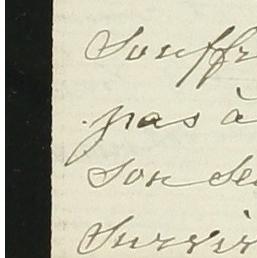 Souffr
pas à
son se
Surviv